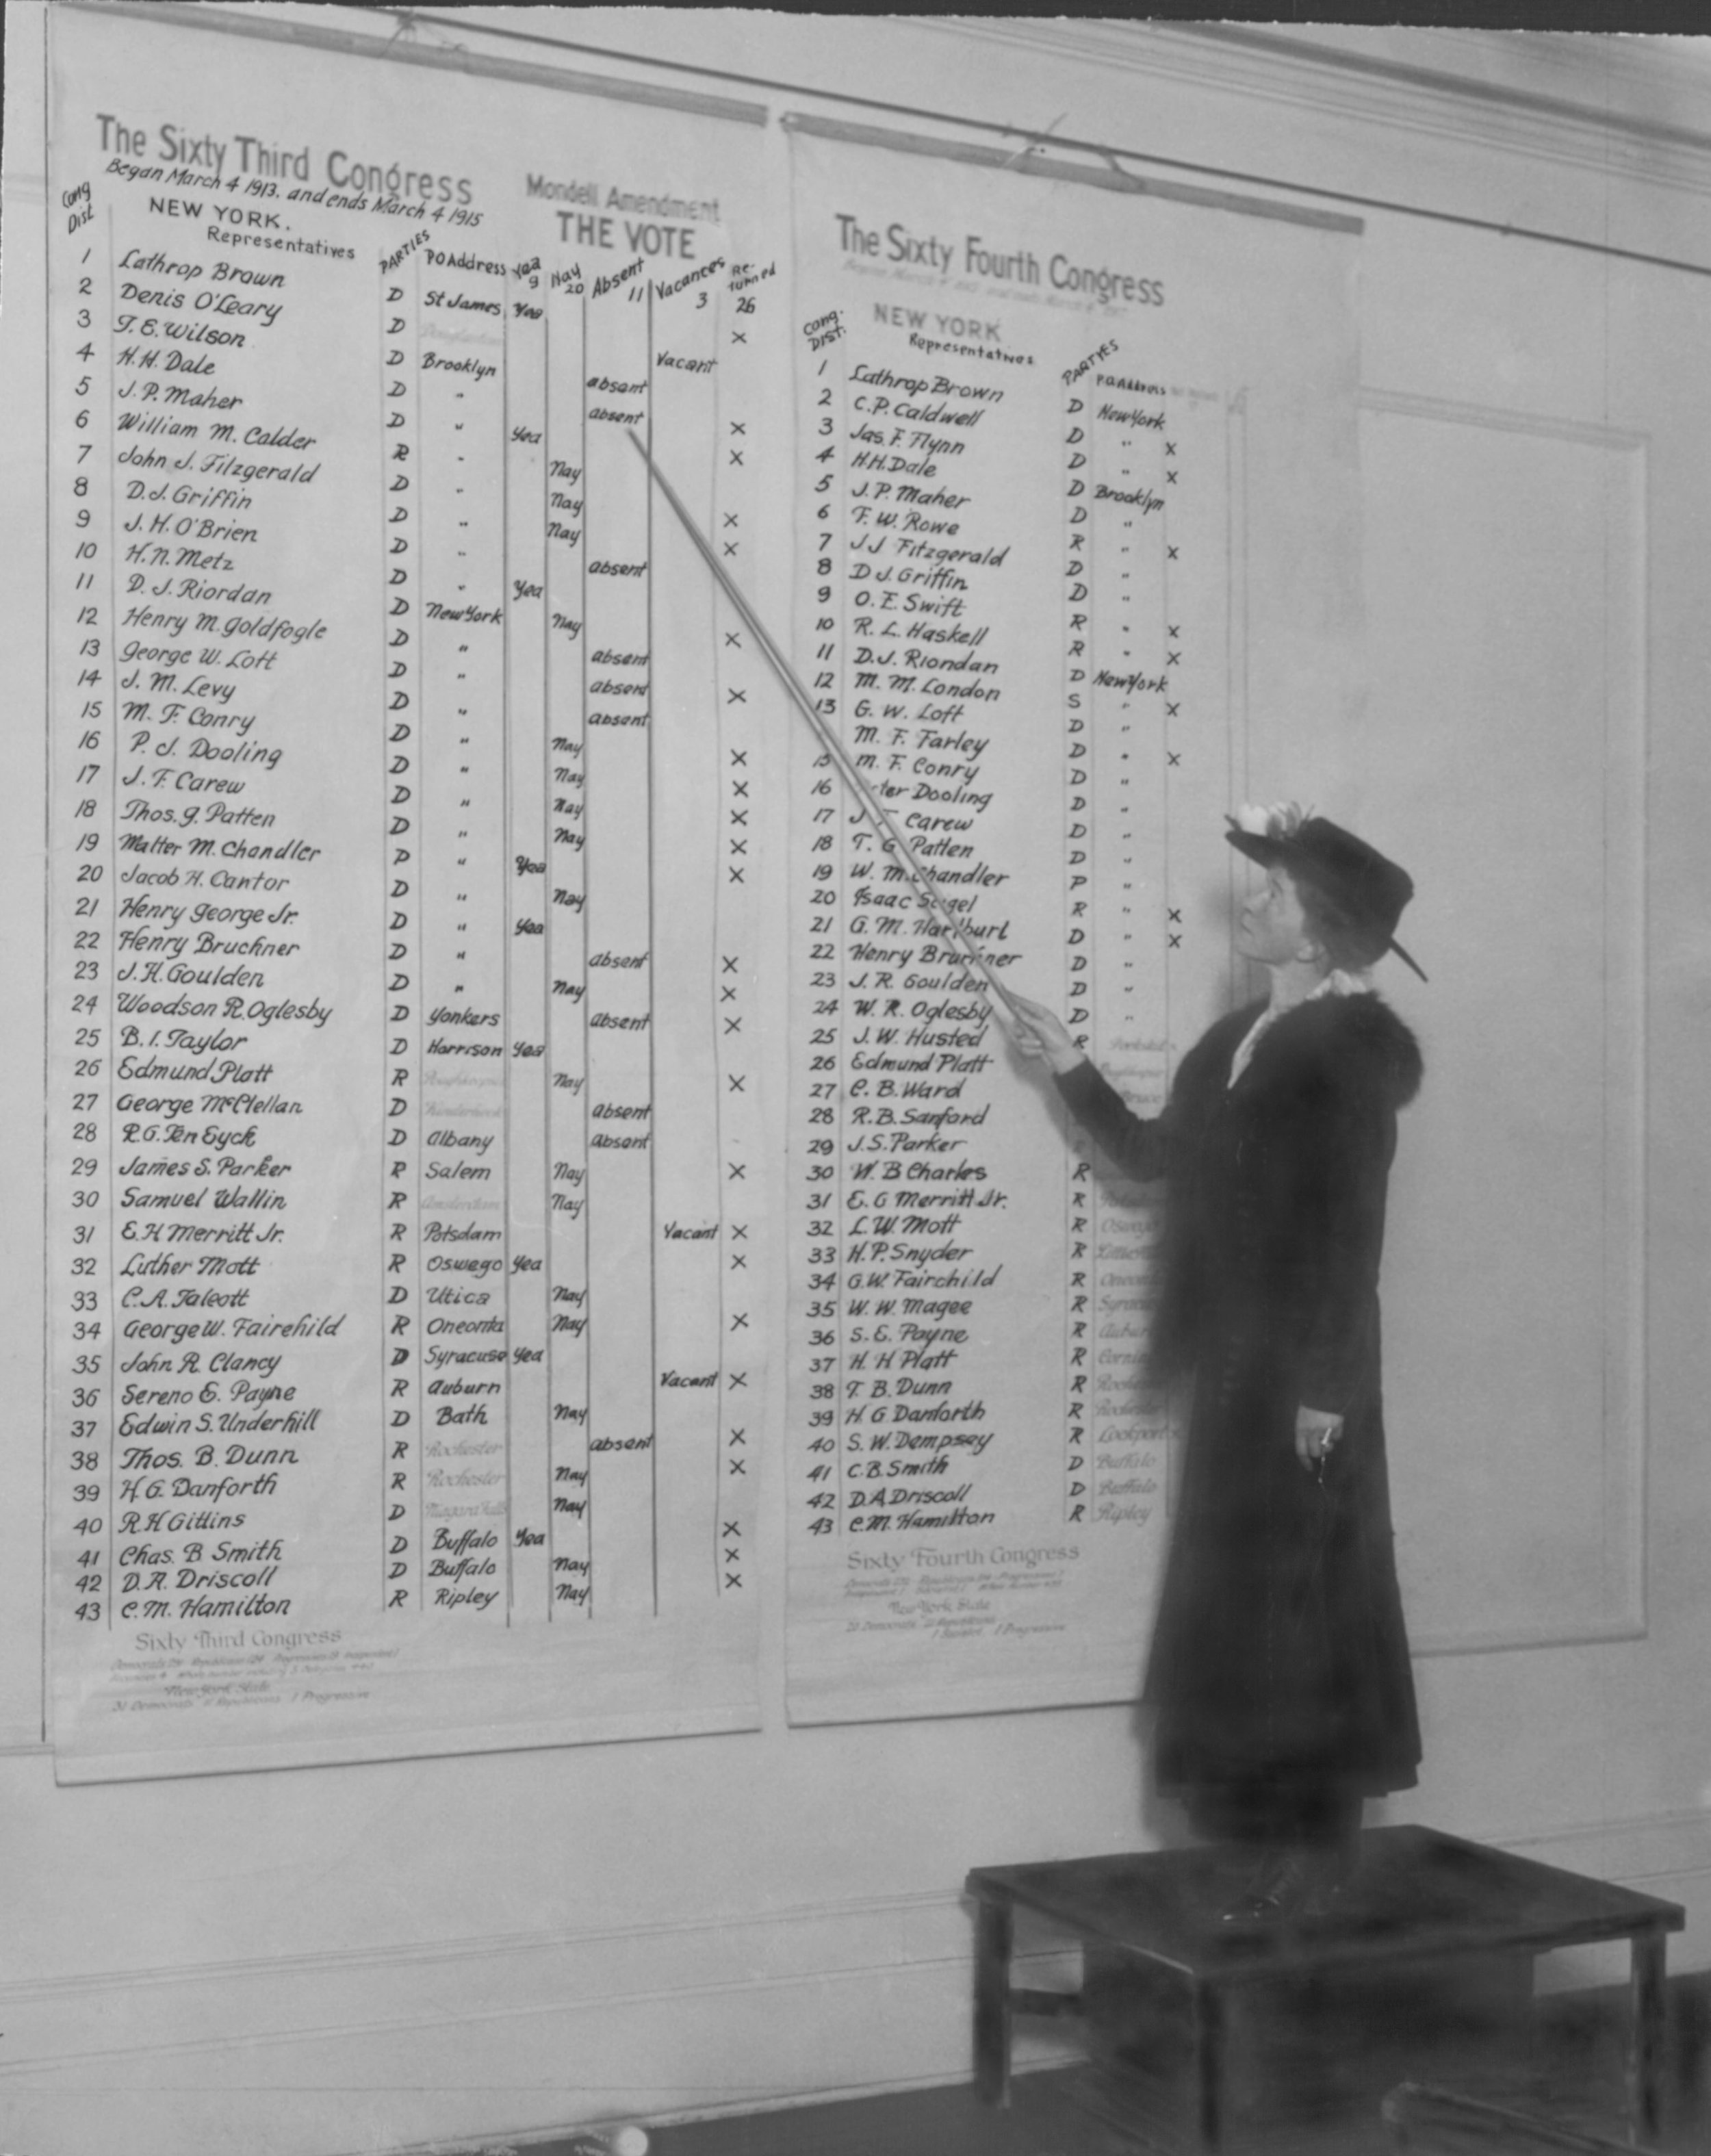 The Sixty Third Congress
Began March 4 1913. and ends March 4 1915
Mondell Amendment
THE VOTE
Cong Dist
NEW YORK.
Representatives
PARTIES
PO Address
Yea 9
Nay 20
Absent 11
Vacances 3
Re-turned 26
1 Lathrop Brown D St James Yea X
2 Denis O'Leary D Vacant
3 T. E. Wilson D Brooklyn absent
4 H. H. Dale D " absent X
5 J. P. Maher D " Yea X
6 William M. Calder R " Nay
7 John J. Fitzgerald D " Nay X
8 D. J. Griffin D " Nay X
9 J. H. O'Brien D " absent
10 H. N. Metz D " Yea
11 D. J. Riordan D New York Nay X
12 Henry M. Goldfogle D " absent
13 George W. Loft D " absent X
14 J. M. Levy D " absent
15 M. F. Conry D " Nay X
16 P. J. Dooling D " Nay X
17 J. F. Carew D " Nay X
18 Thos. G. Patten D " Nay X
19 Walter M. Chandler P " Yea X
20 Jacob H. Cantor D " Nay
21 Henry George Jr. D " Yea
22 Henry Bruchner D " absent X
23 J. H. Goulden D " Nay X
24 Woodson R. Oglesby D Yonkers absent X
25 B. I. Taylor D Harrison Yea
26 Edmund Platt R Nay X
27 George McClellan D absent
28 P. G. Ten Eyck D Albany absent
29 James S. Parker R Salem Nay X
30 Samuel Wallin R Amsterdam Nay
31 E. H Merritt Jr. R Potsdam Vacant X
32 Luther Mott R Oswego Yea X
33 C. A. Talcott D Utica Nay
34 George W. Fairchild R Oneonta Nay X
35 John R. Clancy D Syracuse Yea
36 Sereno E. Payne R Auburn Vacant X
37 Edwin S. Underhill D Bath Nay
38 Thos. B. Dunn R Rochester absent X
39 H. G. Danforth R Rochester Nay X
40 R H Gittins D Niagara Falls Nay
41 Chas. B Smith D Buffalo Yea X
42 D. A. Driscoll D Buffalo Nay X
43 C. M. Hamilton R Ripley Nay X
Sixty Third Congress
New York State
31 Democrats 11 Republicans 1 Progressive
The Sixty Fourth Congress
Cong. DIST.
NEW YORK
Representatives
PARTIES
P.O. Address
1 Lathrop Brown D New York
2 C. P. Caldwell D " X
3 Jas. F. Flynn D " X
4 H. H. Dale D Brooklyn
5 J. P. Maher D "
6 F. W. Rowe R " X
7 J J Fitzgerald D "
8 D J. Griffin D "
9 O. E. Swift R " X
10 R. L. Haskell R " X
11 D. J. Riondan D New York
12 M. M. London S " X
13 G. W. Loft D "
M. F. Farley D " X
15 M. F. Conry D "
16 Dooling D "
17 J Carew D "
18 T. G Patten D "
19 W. M. Chandler P "
20 Isaac Seigel R " X
21 G. M. Harlburt D " X
22 Henry Bruckner D "
23 J. R. Goulden D "
24 W. R. Oglesby D "
25 J. W. Husted R
26 Edmund Platt
27 C. B. Ward
28 R. B. Sanford
29 J. S. Parker
30 W. B Charles R
31 E. G Merritt Jr. R
32 L. W. Mott R
33 H. P. Snyder R
34 G. W. Fairchild R
35 W. W. Magee R
36 S. E. Payne R
37 H. H Platt R
38 T. B. Dunn R
39 H. G Danforth R
40 S. W. Dempsey R Lockport
41 C. B. Smith D Buffalo
42 D. A Driscoll D Buffalo
43 C. M. Hamilton R Ripley
Sixty Fourth Congress
New York State